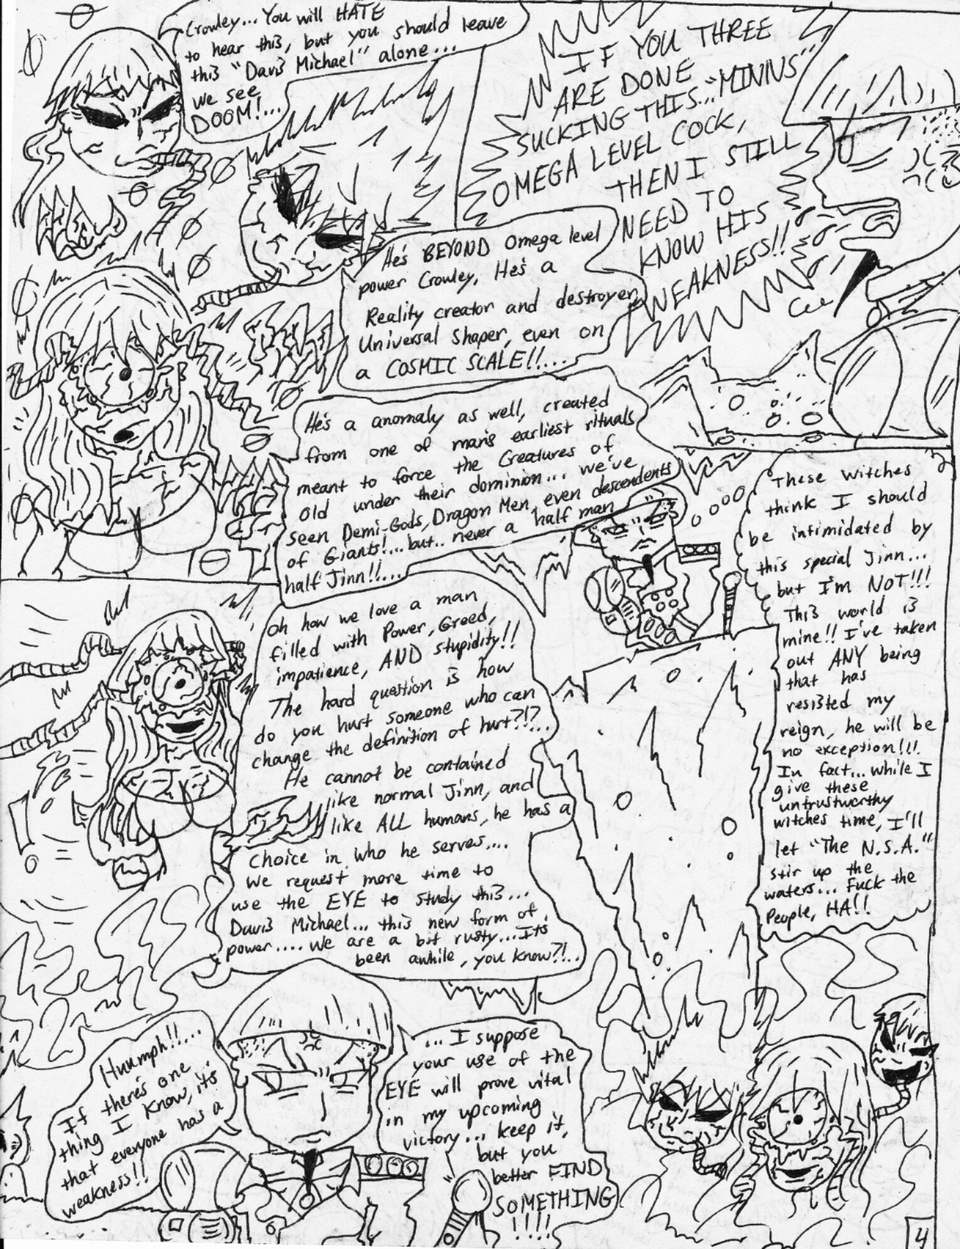 Crowley... You will HATE
to hear this, but you should leave
this "Davis Michael" alone...
We see
DOOM!...
IF YOU THREE
ARE DONE
SUCKING THIS..."MINNS"
OMEGA LEVEL COCK,
THEN I STILL
NEED TO
KNOW HIS
WEAKNESS!!
He's BEYOND Omega level
power Crowley, He's a
Reality creator and destroyer,
Universal Shaper, even on
a COSMIC SCALE!!....
He's a anomaly as well, created
from one of man's earliest rituals
meant to force the Creatures of
old under their dominion... we've
seen Demi-Gods, Dragon Men, even descendents
of Giants!...but.. never a half man
half Jinn!!...
These witches
think I should
be intimidated by
this special Jinn...
but I'm NOT!!!
This world is
mine!! I've taken
out ANY being
that has
resisted my
reign, he will be
no exception!!!.
In fact...while I
give these
untrustworthy
witches time, I'll
let "The N.S.A."
stir up the
waters... Fuck the
People, HA!!
Oh how we love a man
filled with Power, Greed,
impatience, AND stupidity!!
The hard question is how
do you hurt someone who can
change the definition of hurt?!?
He cannot be contained
like normal Jinn, and
like ALL humans, he has a
choice in who he serves....
We request more time to
use the EYE to study this...
Davis Michael... this new form of
power.... We are a bit rusty...Its
been awhile, you know?!..
Huumph!!...
If there's one
thing I know, it's
that everyone has a
weakness!!
... I suppose
your use of the
EYE will prove vital
in my upcoming
victory... keep it,
but you
better FIND
SOMETHING
!!!!
4